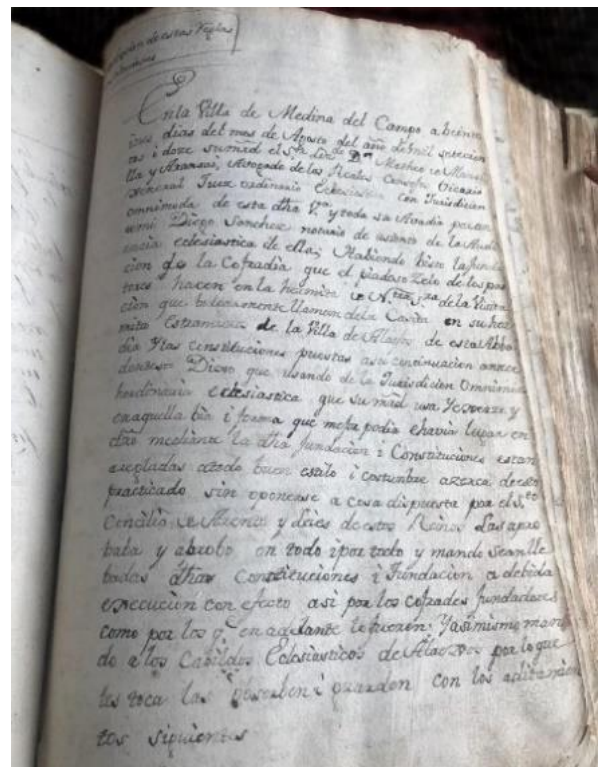 de estas Reglas
En la Villa de Medina del Campo a beinte
dias del mes de Agosto del año de mil setecien
tos i doze su mrd el Sr. Dn Matheo
y Abogado de los Reales Consejos Vicario
General Juez ordinario Eclesiastico con Jurisdicion
omnimoda de esta dha Va. y toda su Abadia por an
te mi Diego Sanchez notario de asiento de la Audi
encia eclesiastica de ella; Habiendo bisto la funda
cion de la Cofradia que el piadoso Zelo de los pas
tores hacen en la hermita de Ntra. Sra. de la Visita
cion que bulgarmente llaman de la Casita en su her
mita Extramuros de la Villa de Alaexos de esta Abba
dia Y las constituciones puestas a su continuacion
Dixo que usando de la Jurisdicion Omnimoda
hordinaria eclesiastica que su mrd usa Y exerze y
en aquella bia i forma que mejor podia e havia lugar en
dro mediante la dha fundacion i Constituciones estan
arregladas a todo buen estilo i costumbre azerca de esto
practicado sin oponerse a cosa dispuesta por el Sto.
Concilio de Trento y leies de estos Reinos Las apro
baba y aprobo en todo i por todo y mando sean lle
badas dhas Constituciones i Fundacion a debida
execucion con efecto asi por los cofrades fundadores
como por los q. en adelante lo fueren Y asimismo man
do a los Cabildos Eclesiasticos de Alaexos por lo que
les toca las obserben i guarden con los aditamen
tos siguientes